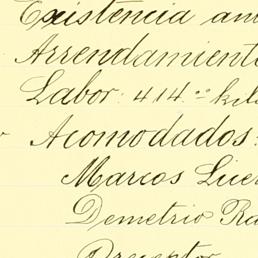 Existencia an
Arrendamiento
Labor: 414.00 kil
Acomodados:
Marcos Lice
Demetrio Ra
Preceptor